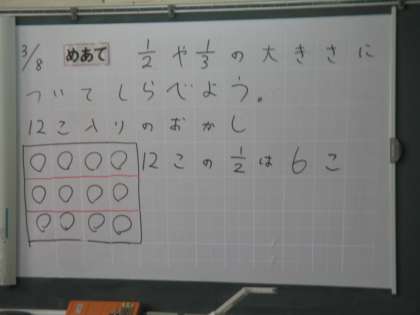 3/8 めあて 1/2や1/3の大きさに
ついてしらべよう。
12こ入りのおかし
12この1/2は6こ